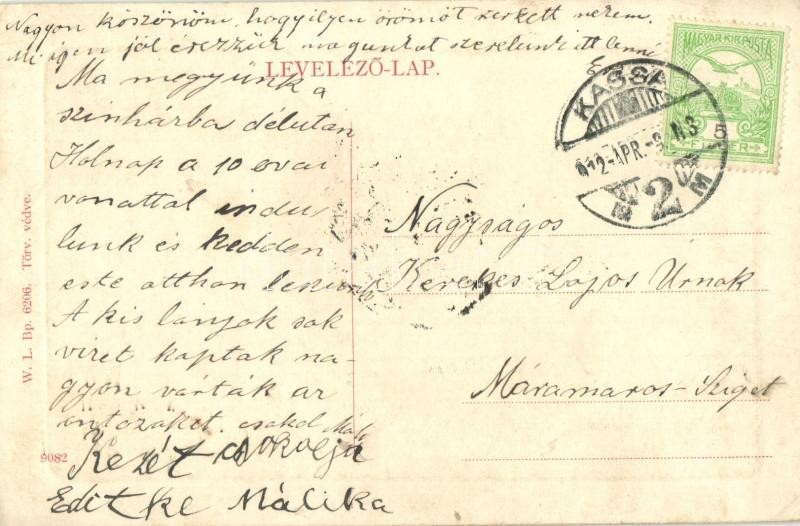 Nagyon köszönöm, hogy ilyen örömöt szerzett nekem.
Mi igen jól érezzük magunkat szeretünk itt lenni
LEVELEZŐ-LAP.
Ma megyünk a
szinházba délután
Holnap a 10 orai
vonattal indu
lunk és kedden
este otthon leszünk
A kis lanyok sok
viret kaptak na-
gyon várták az
csokol
Kezét csokolja
Editke Málika
MAGYAR KIR. POSTA
FILLÉR
KASSA
912-APR.-8 N3
5
M
2
Nagyságos
Kerekes Lajos Úrnak
Máramaros-Sziget
W. L. Bp. 6206. Törv. védve.
9082